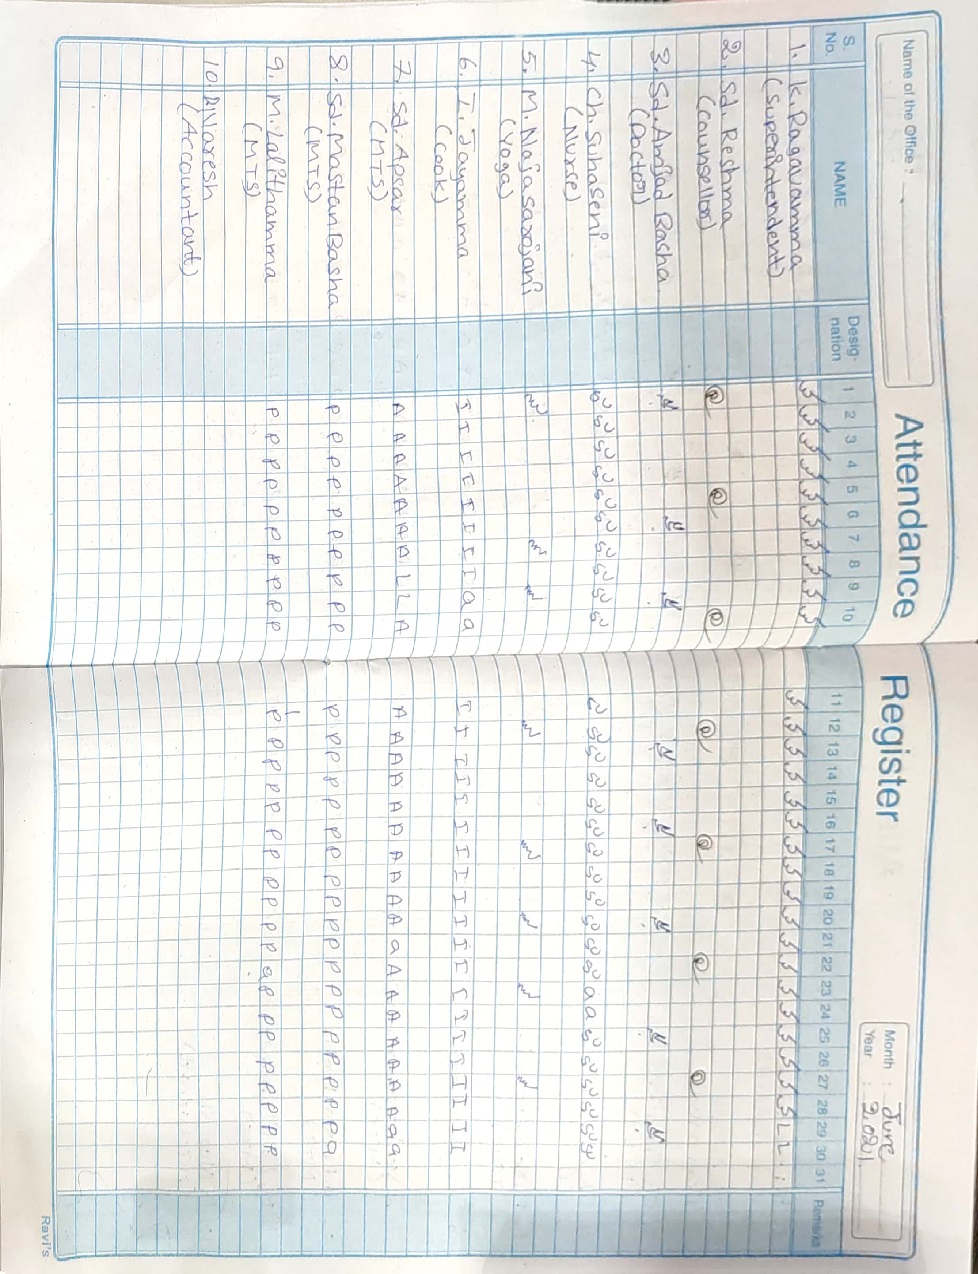 Attendance Register
Name of the Office :
Month : June
Year : 2021
S. No. NAME Desig-nation 1 2 3 4 5 6 7 8 9 10 11 12 13 14 15 16 17 18 19 20 21 22 23 24 25 26 27 28 29 30 31 Remarks
1. K. Ragavamma
(Superintendent)
2. Sd. Reshma
(Counsellor)
3. Sd. Amjad Basha
(Doctor)
4. Ch. Suhaseni
(Nurse)
5. M. Nagasarojani
(Yoga)
6. I. Jayamma I I I I I I I I a a I I I I I I I I I I I I I I I I I I I I
(Cook)
7. Sd. Apsar A A A A A A A L L A A A A A A A A A A A a A A A A A A A a a
(MTS)
8. Sd. Mastan Basha P P P P P P P P P P P P P P P P P P P P P P P P P P P P P a
(MTS)
9. M. Lalithamma P P P P P P P P P P P P P P P P P P P P P a P P P P P P P P
(MTS)
10. Naresh
(Accountant)
Ravi's